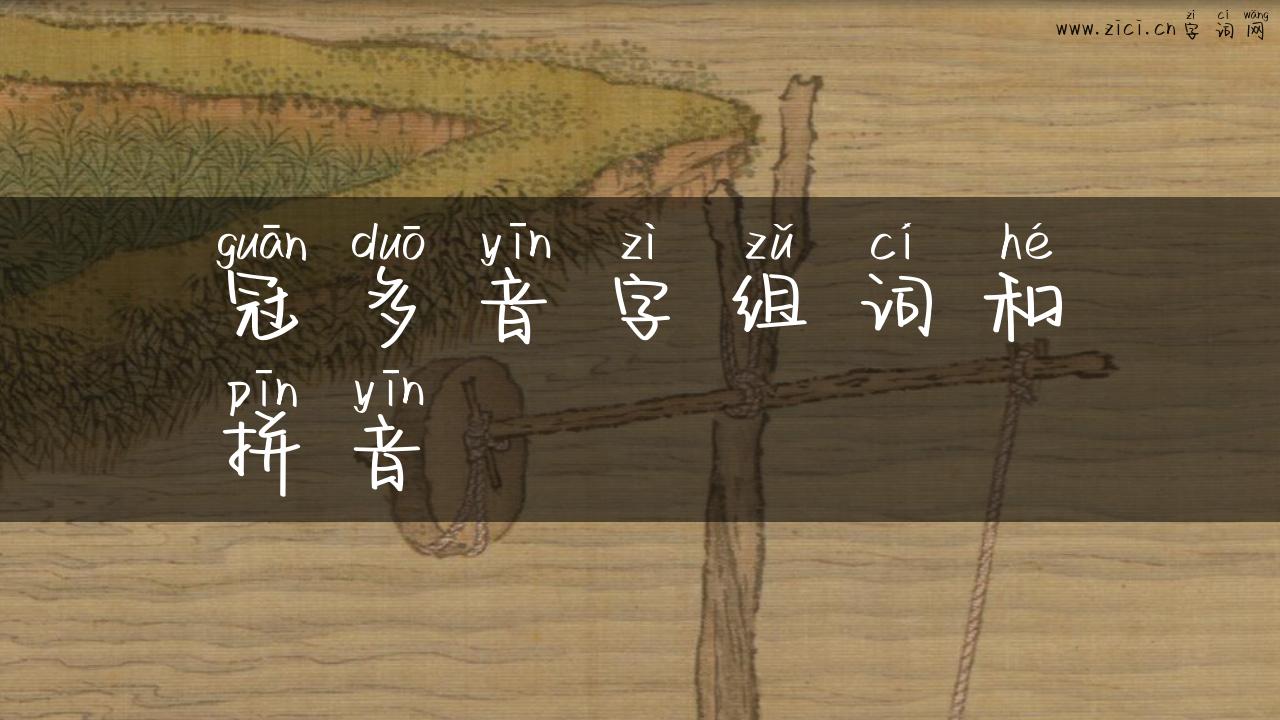 zì cí wǎng
www.zici.cn 字词网
guān duō yīn zì zǔ cí hé
冠多音字组词和
pīn yīn
拼音